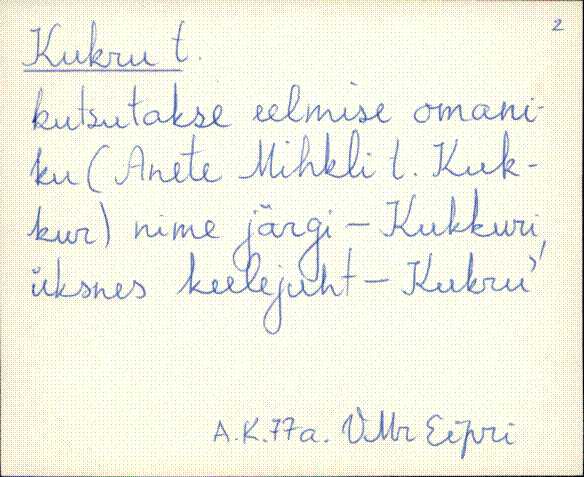 2
Kukru t.
kutsutakse eelmise omani-
ku (Anete Mihkli t. Kuk-
kur) nime järgi – Kukkuri,
üksnes keelejuht – Kukru'
A.K.77a. VMr Eipri